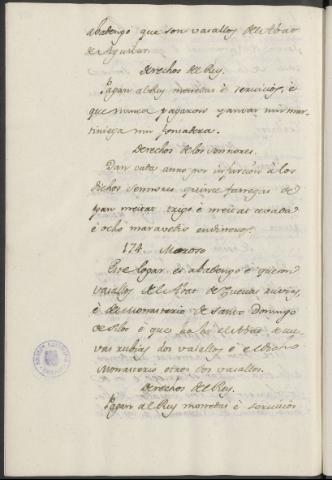 abadengo que son vasallos del Abat
de Aguilar.
Derechos del Rey.
Pagan al Rey monedas è servicios, è
que nunca pagaron yantar nin mar-
tiniega nin fonsadera.
Derechos de los Sennores.
Dan cada anno por infurcion à los
dichos Sennores quince fanegas de
pan meitat trigo è meitat cevada
è ocho maravedis en dineros.
174.
Este logar es abadengo è que son
vasallos del Abat de Cuevas ruvias,
è del Monasterio de Santo Domingo
de Silos è que ha el Abat de Cue-
vas rubias dos vasallos è el dicho
Monasterio otros dos vasallos.
Derechos del Rey.
Pagan al Rey monedas è servicios